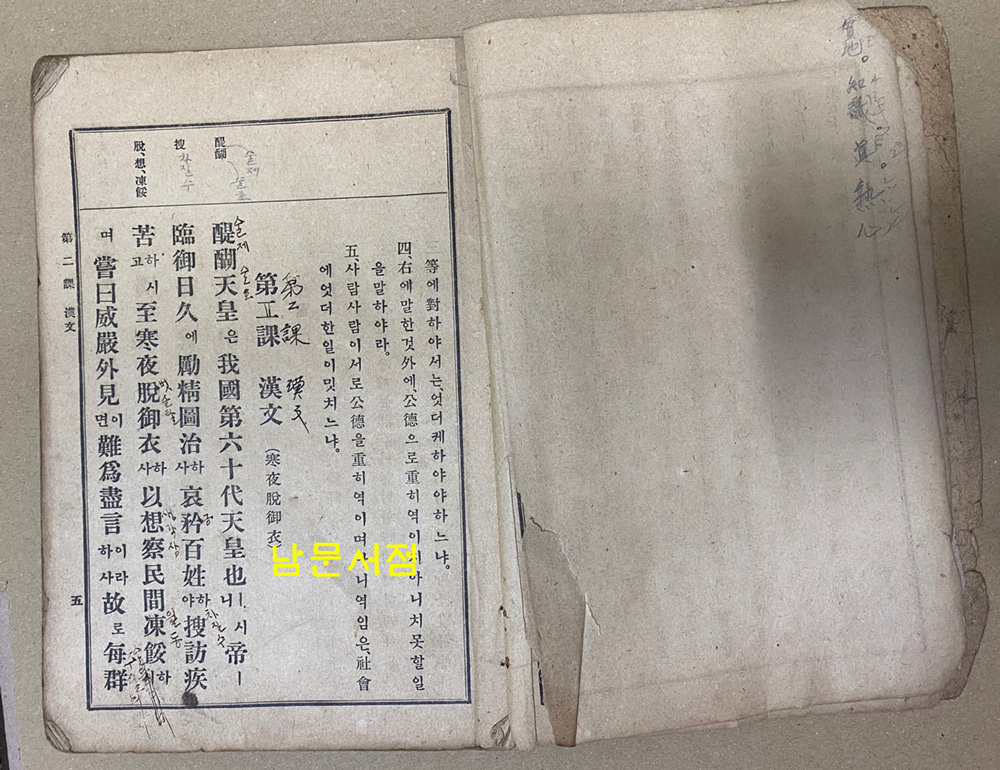 三等에對하야서는、엇더케하야야하느냐。
四、右에말한것外에、公德으로重히역이지아니치못할일
을말하야라。
五、사람사람이서로公德을重히역이며아니역임은、社會
에엇더한일이밋치느냐。
第二課 漢文 (寒夜脫御衣)
第二課 漢文
醍醐天皇은我國第六十代天皇也ㅣ시니帝ㅣ
臨御日久에勵精圖治하사哀矜百姓하야搜訪疾
苦하시고至寒夜脫御衣하사以想察民間凍餒하시
며嘗曰威嚴外見이면難爲盡言이라하사故로每群
醍醐
술제
술호
搜
차잘수
脫、想、凍餒
술제
술호
차잘수
第二課 漢文
五
남문서점
知識
熱心